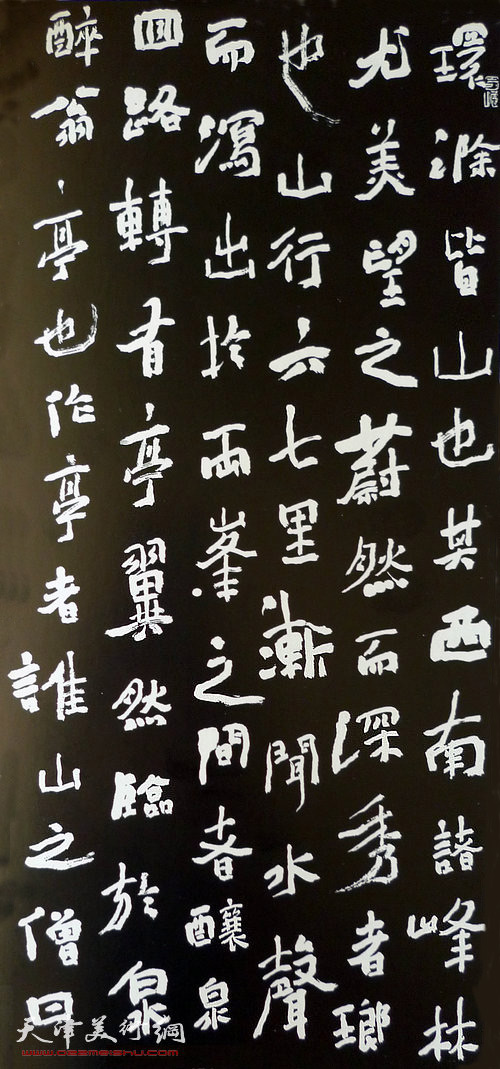 環滁皆山也其西南諸峰林
尤美望之蔚然而深秀者瑯
也山行六七里漸聞水聲
而瀉出於兩峯之間者釀泉
回路轉有亭翼然臨於泉
醉翁亭也作亭者誰山之僧曰
天津美術網